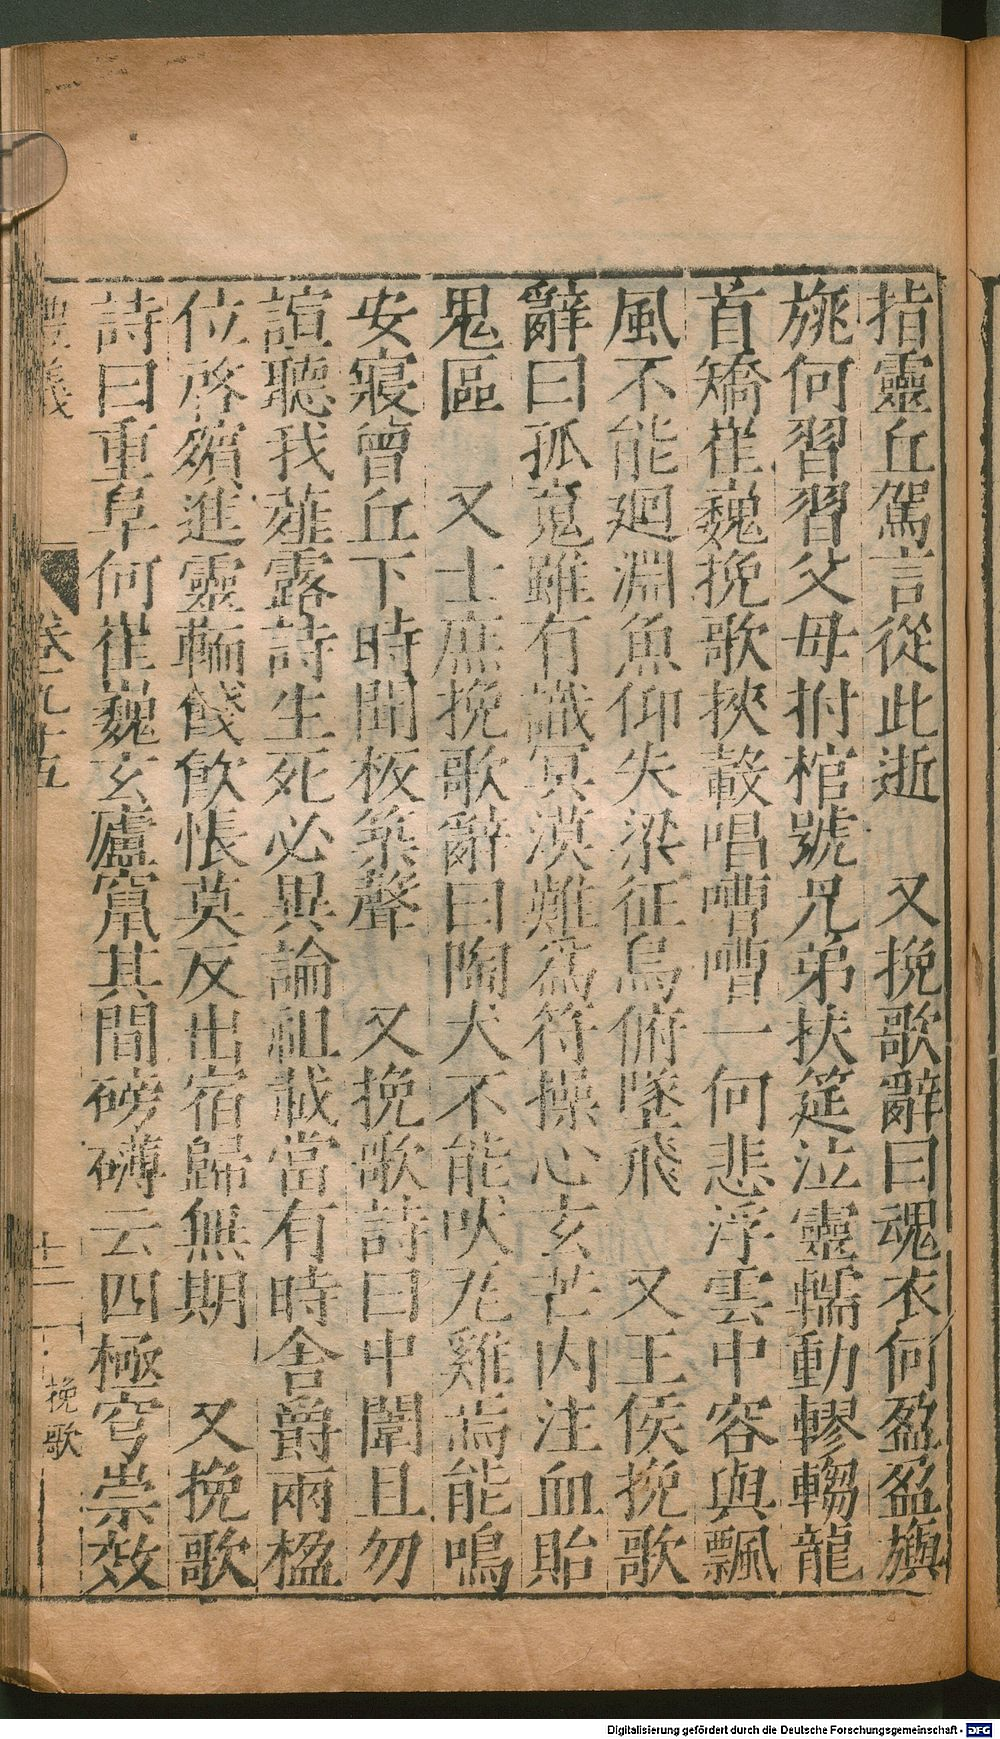 指靈丘駕言從此逝　又挽歌辭曰魂衣何盈盈旟
旐何習習父母拊棺號兄弟扶筵泣靈轜動轇輵龍
首矯崔巍挽歌挾轂唱嘈嘈一何悲浮雲中容與飄
風不能廻淵魚仰失梁征鳥俯墜飛　又王侯挽歌
辭曰孤䰟雖有識冥漠難爲符操心玄芒内注血貽
鬼區　又士庶挽歌辭曰陶犬不能吠瓦雞焉能鳴
安寢曾丘下時聞板築聲　又挽歌詩曰中闈且勿
諠聽我薤露詩生死必異論祖載當有時舍爵兩楹
位啓殯進靈轜餞飲悵莫反出宿歸無期　又挽歌
詩曰重阜何崔巍玄廬竁其間磅礴云四極穹崇效
禮義
卷九十五
十二
挽歌
Digitalisierung gefördert durch die Deutsche Forschungsgemeinschaft - DFG